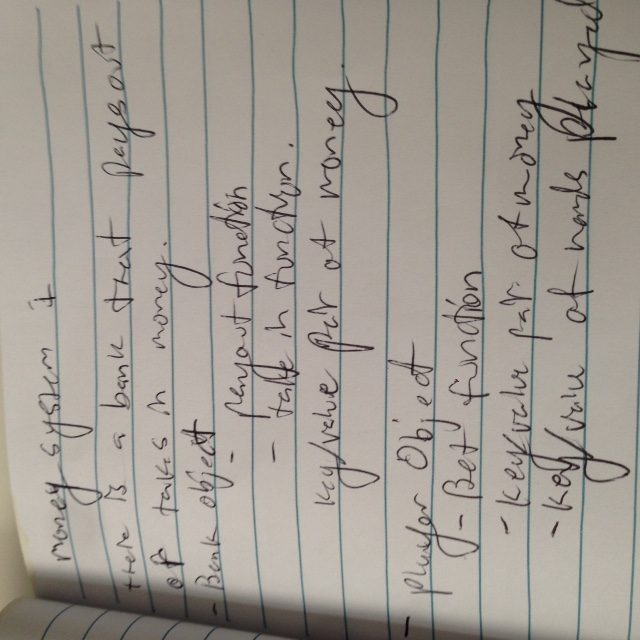 money system 1
there is a bank that pays out
of takes in money.
- Bank object
- payout function
- take in function.
key/value pair of money.
- player Object
- Bet function
- key/value pair of money
- key/value of hands played